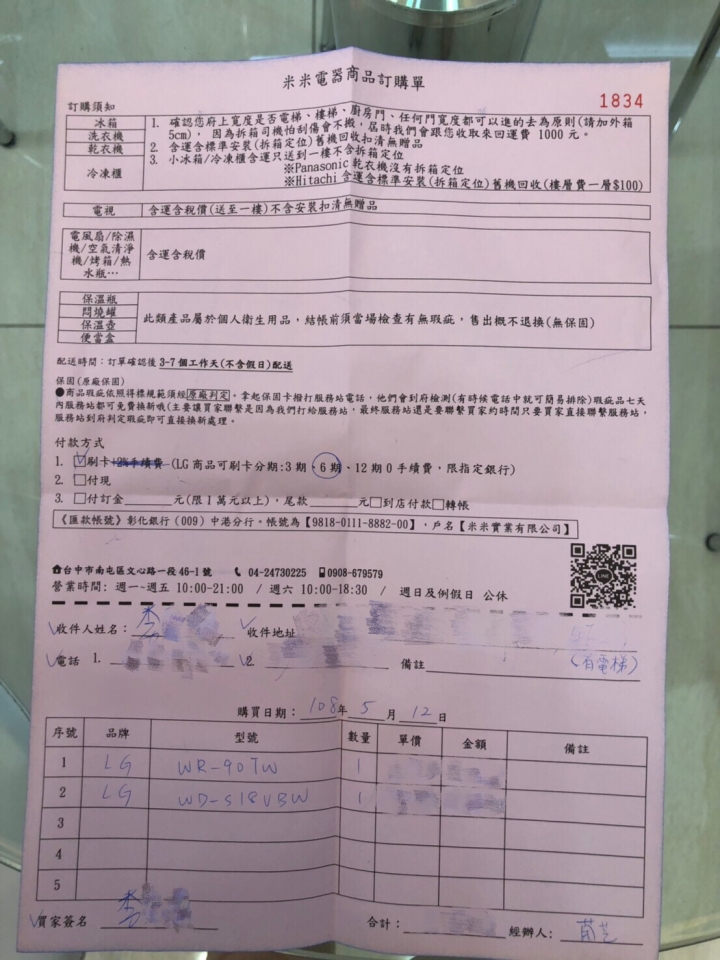 米米電器商品訂購單
1834
訂購須知
冰箱
洗衣機
乾衣機
冷凍櫃
1. 確認您府上寬度是否電梯、樓梯、廚房門、任何門寬度都可以進的去為原則(請加外箱
5cm)，因為拆箱司機怕刮傷會不搬，屆時我們會跟您收取來回運費 1000 元。
2. 含運含標準安裝(拆箱定位)舊機回收扣清無贈品
3. 小冰箱/冷凍櫃含運只送到一樓不含拆箱定位
※Panasonic 乾衣機沒有拆箱定位
※Hitachi 含運含標準安裝(拆箱定位)舊機回收(樓層費一層$100)
電視 含運含稅價(送至一樓)不含安裝扣清無贈品
電風扇/除濕
機/空氣清淨
機/烤箱/熱
水瓶…
含運含稅價
保溫瓶
悶燒罐
保溫壺
便當盒
此類產品屬於個人衛生用品，結帳前須當場檢查有無瑕疵，售出概不退換(無保固)
配送時間：訂單確認後 3-7 個工作天(不含假日)配送
保固(原廠保固)
●商品瑕疵依照得標規範須經原廠判定。拿起保固卡撥打服務站電話，他們會到府檢測(有時候電話中就可簡易排除)瑕疵品七天
內服務站都可免費換新哦(主要讓買家聯繫是因為我們打給服務站，最終服務站還是要聯繫買家約時間只要買家直接聯繫服務站，
服務站到府判定瑕疵即可直接換新處理。
付款方式
1. ☑刷卡+2%手續費 (LG 商品可刷卡分期:3 期、6 期、12 期 0 手續費，限指定銀行)
2. □付現
3. □付訂金＿＿＿元(限 1 萬元以上)，尾款＿＿＿元□到店付款□轉帳
《匯款帳號》彰化銀行 (009) 中港分行。帳號為【9818-0111-8882-00】，戶名【米米實業有限公司】
☎台中市南屯區文心路一段 46-1 號 04-24730225 0908-679579
營業時間: 週一~週五 10:00-21:00 / 週六 10:00-18:30 / 週日及例假日 公休
✓收件人姓名：李 ✓收件地址
✓電話 1. ✓2. 備註 (有電梯)
購買日期：108年 5 月 12 日
序號 品牌 型號 數量 單價 金額 備註
1 LG WR-90TW 1
2 LG WD-S18VBW 1
3
4
5
✓買家簽名 李 合計： 經辦人: